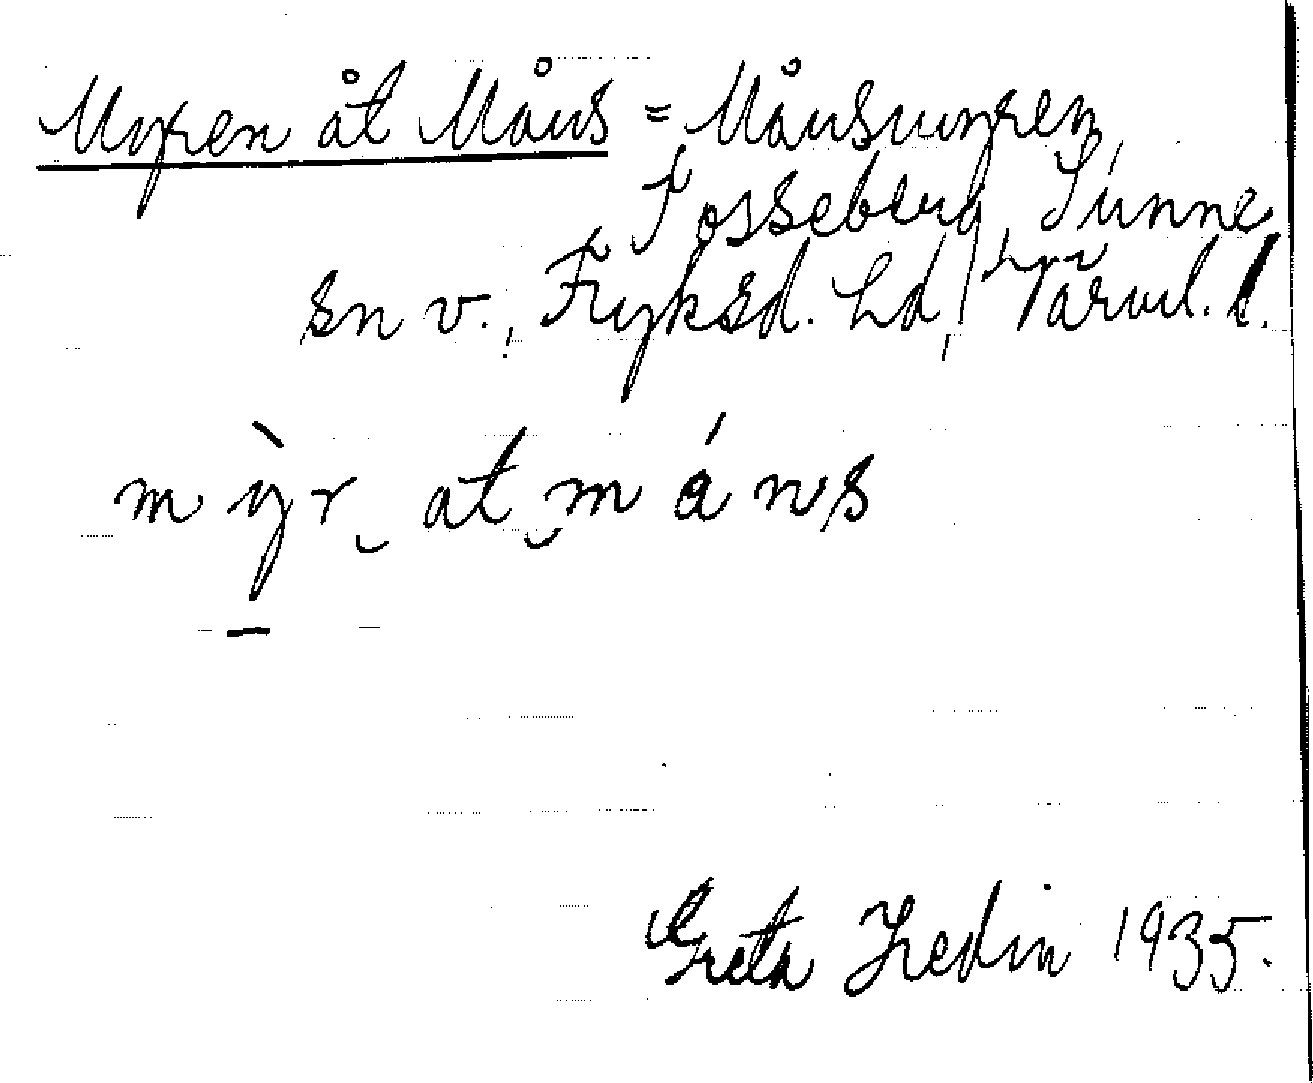 Myren åt Måns = Månsmyren,
Fosseberg, Sunne
sn v., Fryksd. hd, Värml. l.
m ỳr‿ at‿m á ns
Greta Hedin 1935.